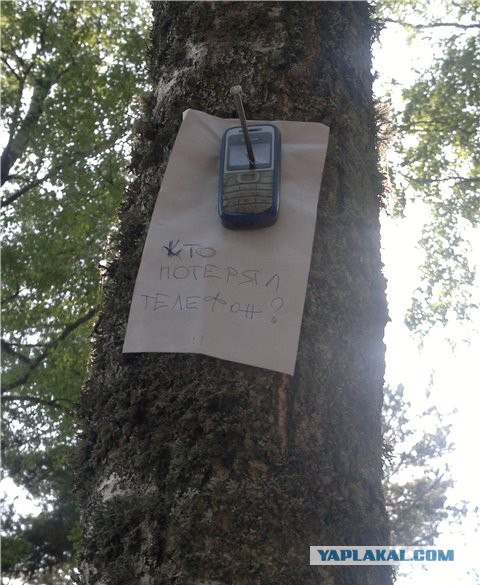 КТО
ПОТЕРЯЛ
ТЕЛЕФОН?
:)
YAPLAKAL.COM